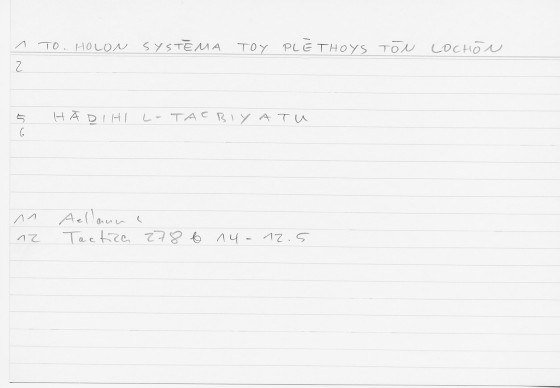 1 TO. HOLON SYSTĒMA TOY PLĒTHOYS TŌN LOCHŌN
2
5 HĀḎIHI L-TAʿBIYATU
6
11
12 Tactica 278 6 14-12.5